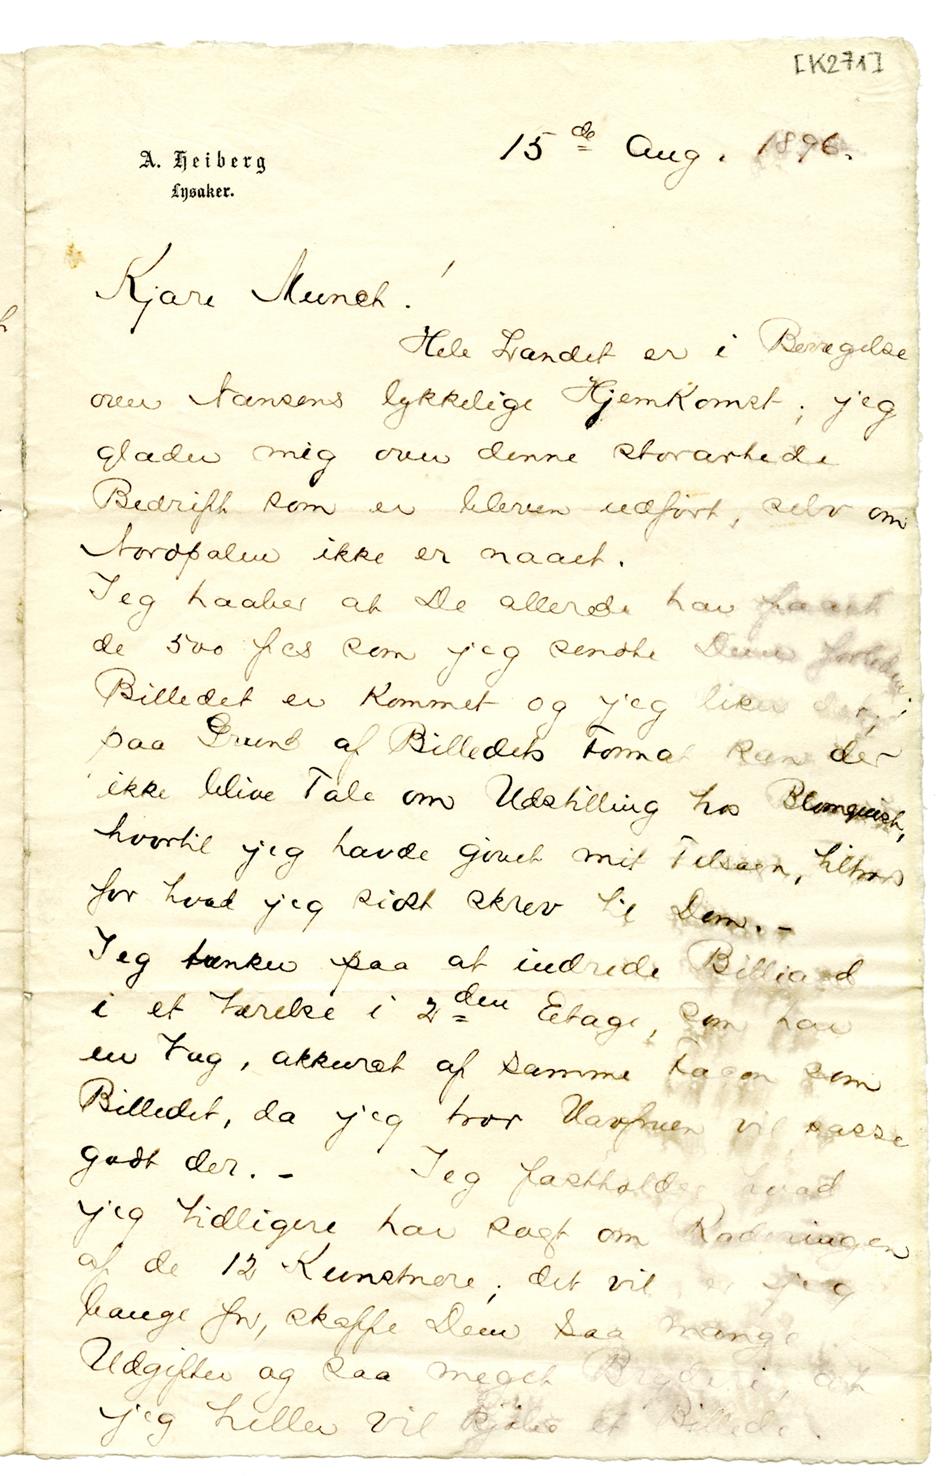 [K271]
A. Heiberg
Lysaker.
15 de Aug. 1896.
Kjære Munch!
Hele Landet er i Bevægelse
over Nansens lykkelige Hjemkomst; jeg
glæder mig over denne storartede
Bedrift som er bleven udført, selv om
Nordpolen ikke er naaet.
Jeg haaber at De allerede har faaet
de 500 fcs som jeg sendte Dem forleden;
Billedet er kommet og jeg liker det;
paa Grund af Billedets Format kan der
ikke blive Tale om Udstilling hos Blomquist,
hvortil jeg havde givet mit Tilsagn, tiltrods
for hvad jeg sidst skrev til Dem. –
Jeg tænker paa at indrede Billiard
i et Værelse i 2 den Etage, som har
en Væg, akkurat af samme Facon som
Billedet, da jeg tror Havfruen vil passe
godt der. – Jeg fastholder hvad
jeg tidligere har sagt om Raderingen
af de 12 Kunstnere; det vil er jeg
bange for, skaffe Dem saa mange
Udgifter og saa meget Bryderi, at
jeg heller vil kjøbe et Billede.